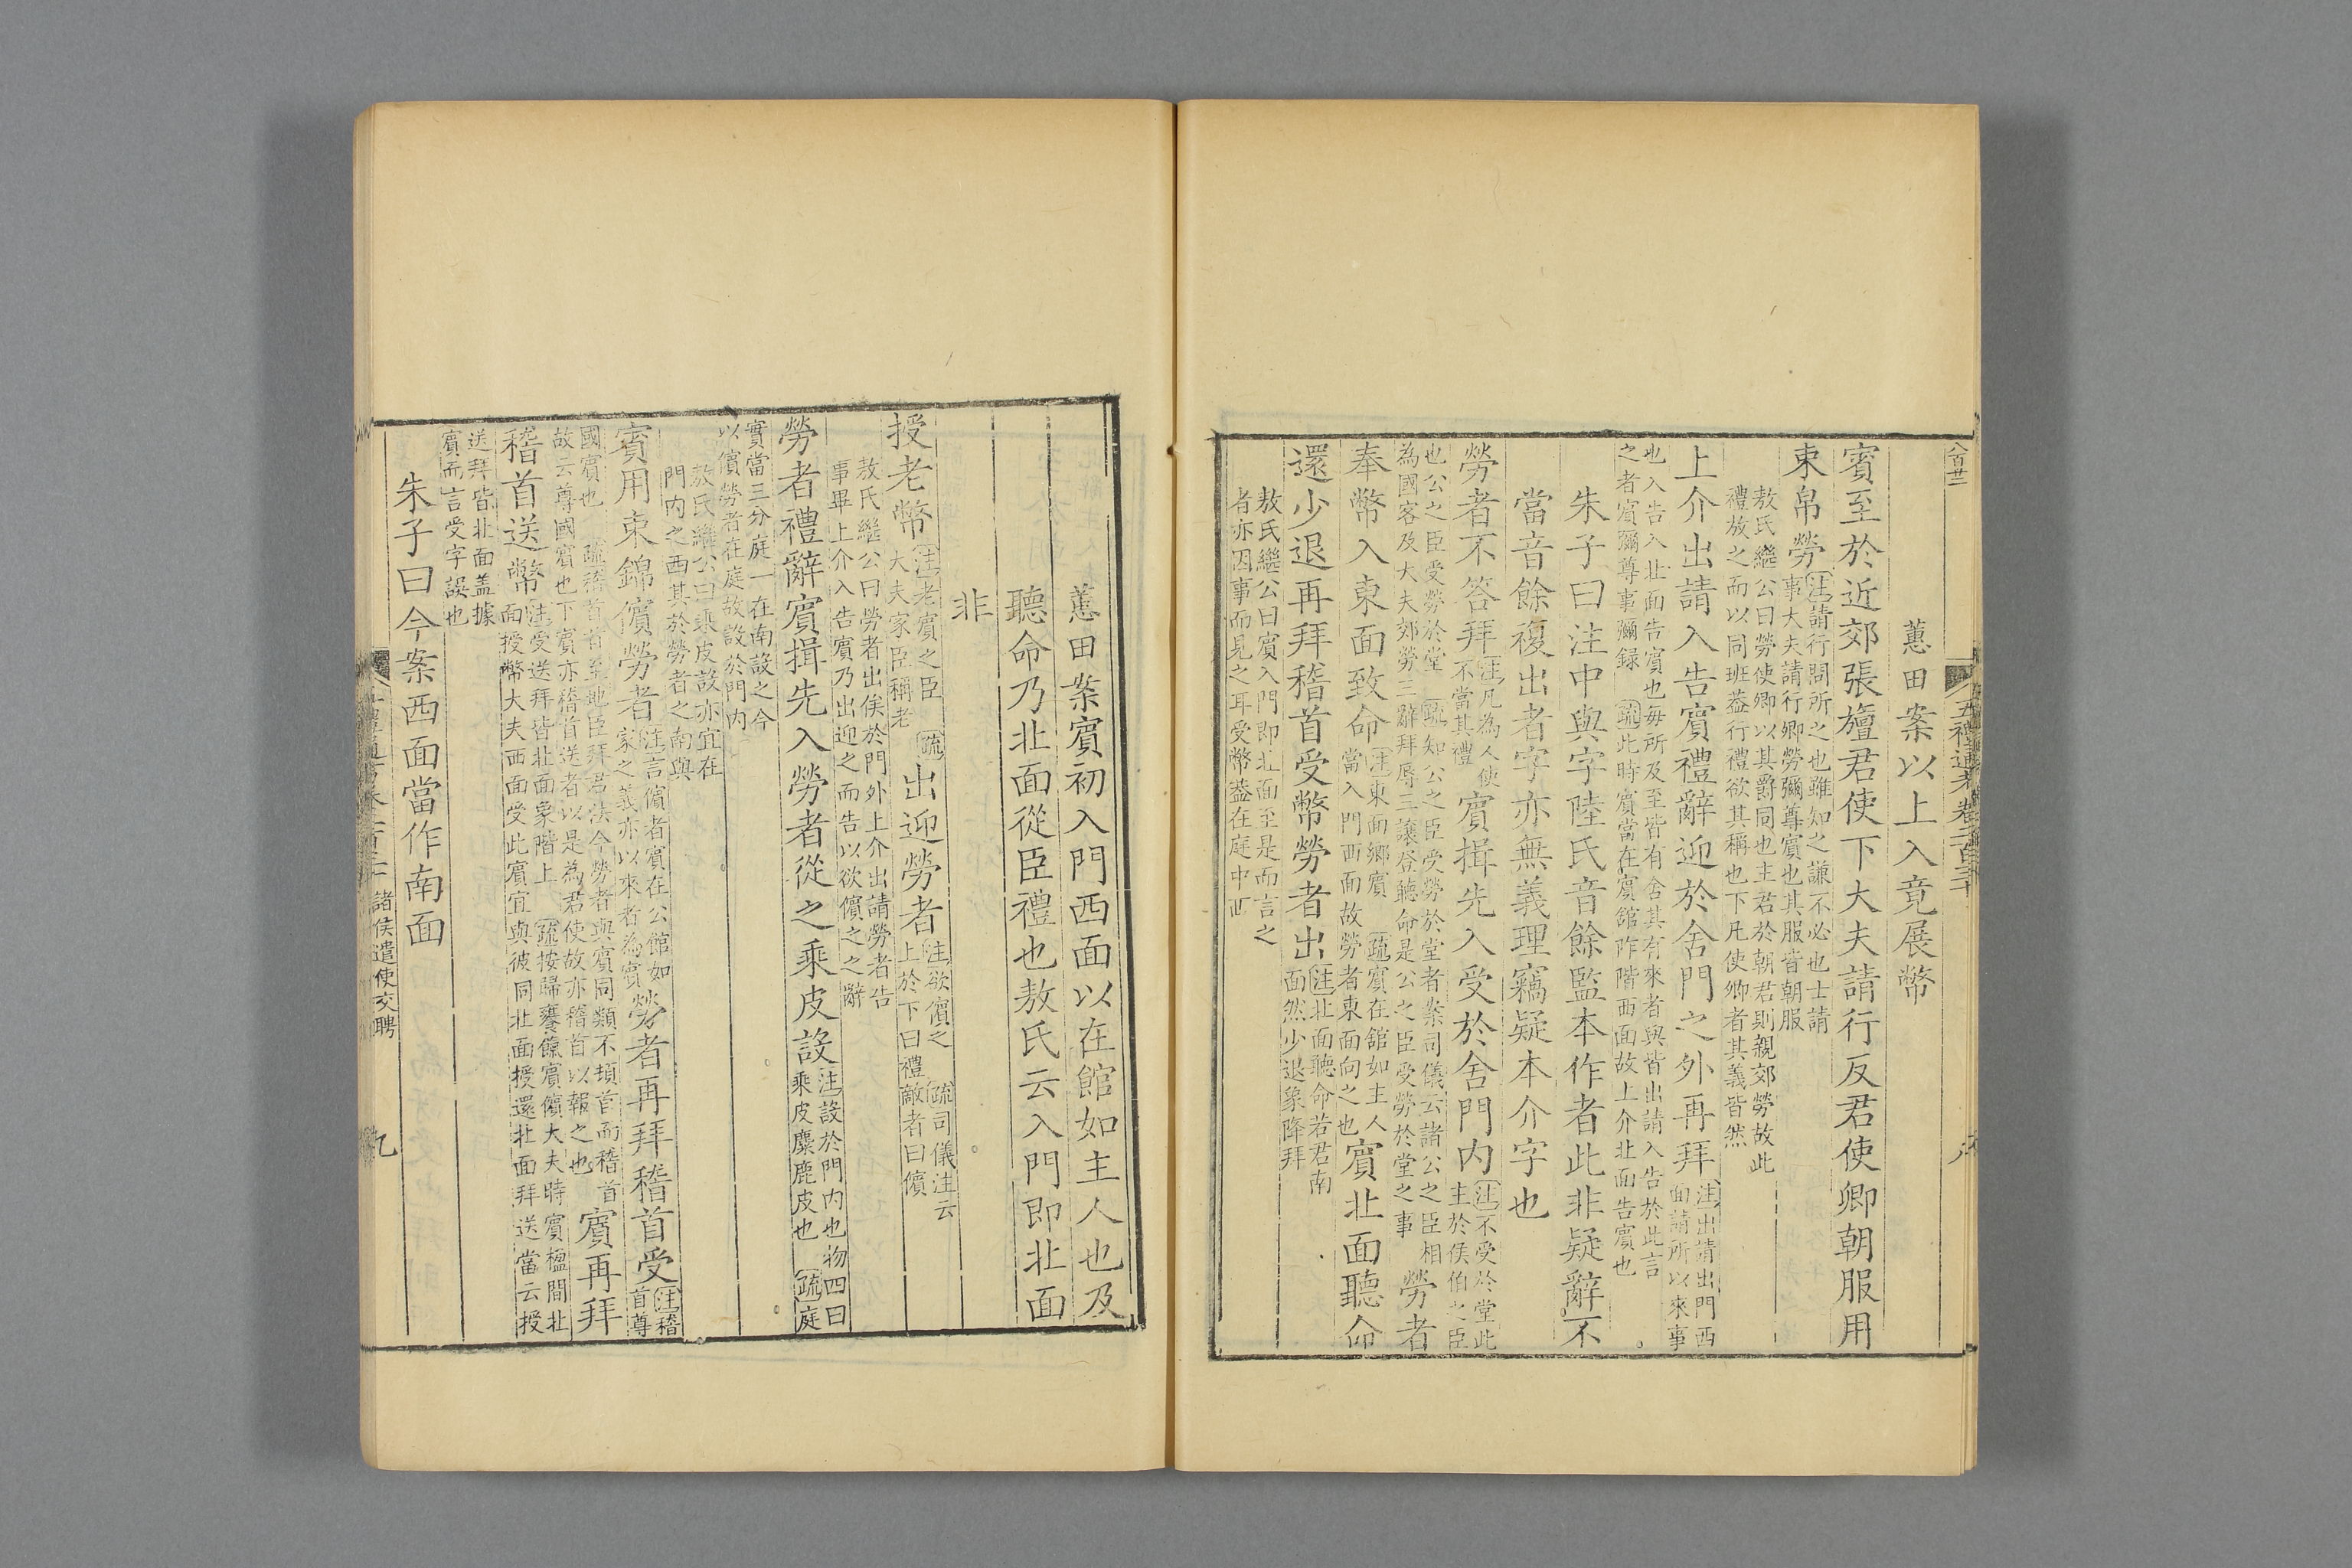 八百廿二
五禮通考卷二百三十
八
蕙田案以上入竟展幣
賓至於近郊張旜君使下大夫請行反君使卿朝服用
束帛勞
注請行問所之也雖知之謙不必也士請
事大夫請行卿勞彌尊賓也其服皆朝服
敖氏繼公曰勞使卿以其爵同也主君於朝君則親郊勞故此
禮放之而以同班葢行禮欲其稱也下凡使卿者其義皆然
上介出請入告賓禮辭迎於舍門之外再拜
注出請出門西
面請所以來事
也入告入北面告賓也每所及至皆有舍其有來者與皆出請入告於此言
之者賓彌尊事彌録 疏此時賓當在賓館阼階西面故上介北面告賓也
朱子曰注中與字陸氏音餘監本作者此非疑辭不
當音餘複出者字亦無義理竊疑本介字也
勞者不答拜
注凡為人使
不當其禮
賓揖先入受於舍門内
注不受於堂此
主於侯伯之臣
也公之臣受勞於堂 疏知公之臣受勞於堂者案司儀云諸公之臣相
為國客及大夫郊勞三辭拜辱三讓登聽命是公之臣受勞於堂之事
勞者
奉幣入東面致命
注東面鄉賓 疏賓在館如主人
當入門西面故勞者東面向之也
賓北面聽命
還少退再拜稽首受幣勞者出
注北面聽命若君南
面然少退象降拜
敖氏繼公曰賓入門即北面至是而言之
者亦因事而見之耳受幣葢在庭中西
蕙田案賓初入門西面以在館如主人也及
聽命乃北面從臣禮也敖氏云入門即北面
非
授老幣
注老賓之臣
大夫家臣稱老
疏
出迎勞者
注欲儐之 疏司儀注云
上於下曰禮敵者曰儐
敖氏繼公曰勞者出俟於門外上介出請勞者告
事畢上介入告賓乃出迎之而告以欲儐之之辭
勞者禮辭賓揖先入勞者從之乘皮設
注設於門内也物四曰
乘皮麋鹿皮也 疏庭
實當三分庭一在南設之今
以儐勞者在庭故設於門内
敖氏繼公曰乘皮設亦宜在
門内之西其於勞者之南與
賓用束錦儐勞者
注言儐者賓在公館如
家之義亦以來者為賓
勞者再拜稽首受
注稽
首尊
國賓也 疏稽首首至地臣拜君法今勞者與賓同類不頓首而稽首
故云尊國賓也下賓亦稽首送者以是為君使故亦稽首以報之也
賓再拜
稽首送幣
注受送拜皆北面象階上 疏按歸饔餼賓儐大夫時賓楹間北
面授幣大夫西面受此賓宜與彼同北面授還北面拜送當云授
送拜皆北面盖據
賓而言受字誤也
朱子曰今案西面當作南面
諸侯遣使交聘
九